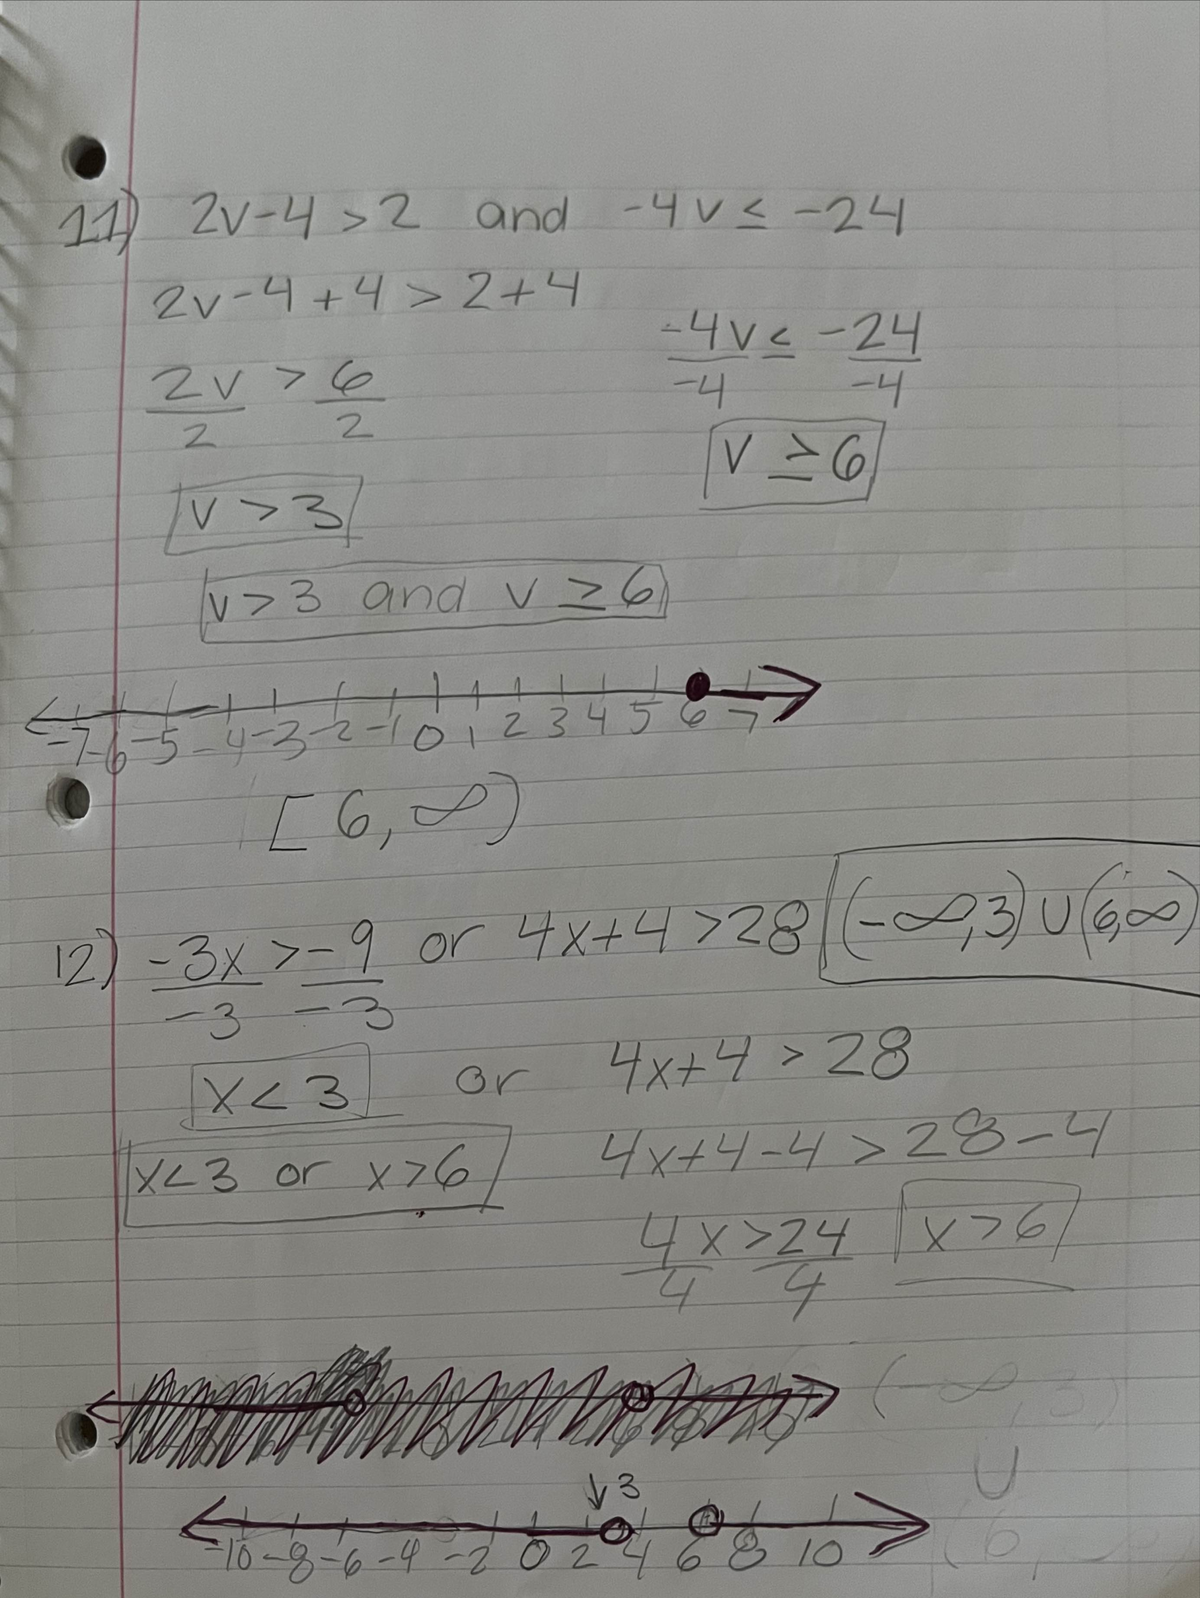 11) 2v-4 > 2 and -4v ≤ -24
2v-4+4 > 2+4
-4v ≤ -24
-4 -4
2v > 6
2 2
v ≥ 6
v > 3
v > 3 and v ≥ 6
-7 -6 -5 -4 -3 -2 -1 0 1 2 3 4 5 6 7
[6, ∞)
12) -3x > -9 or 4x+4 > 28 (-∞,3) ∪ (6,∞)
-3 -3
x < 3 or 4x+4 > 28
4x+4-4 > 28-4
x<3 or x>6
4x > 24 x > 6
4 4
(-∞, 3)
∪
(6, ∞)
↓3
-10 -8 -6 -4 -2 0 2 4 6 8 10